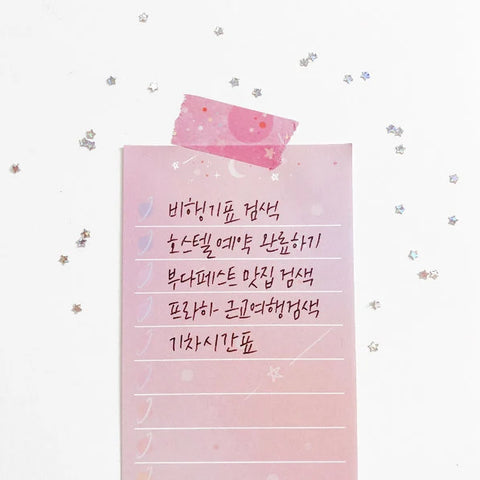 비행기표 검색
호스텔 예약 완료하기
부다페스트 맛집 검색
프라하 근교여행검색
기차시간표